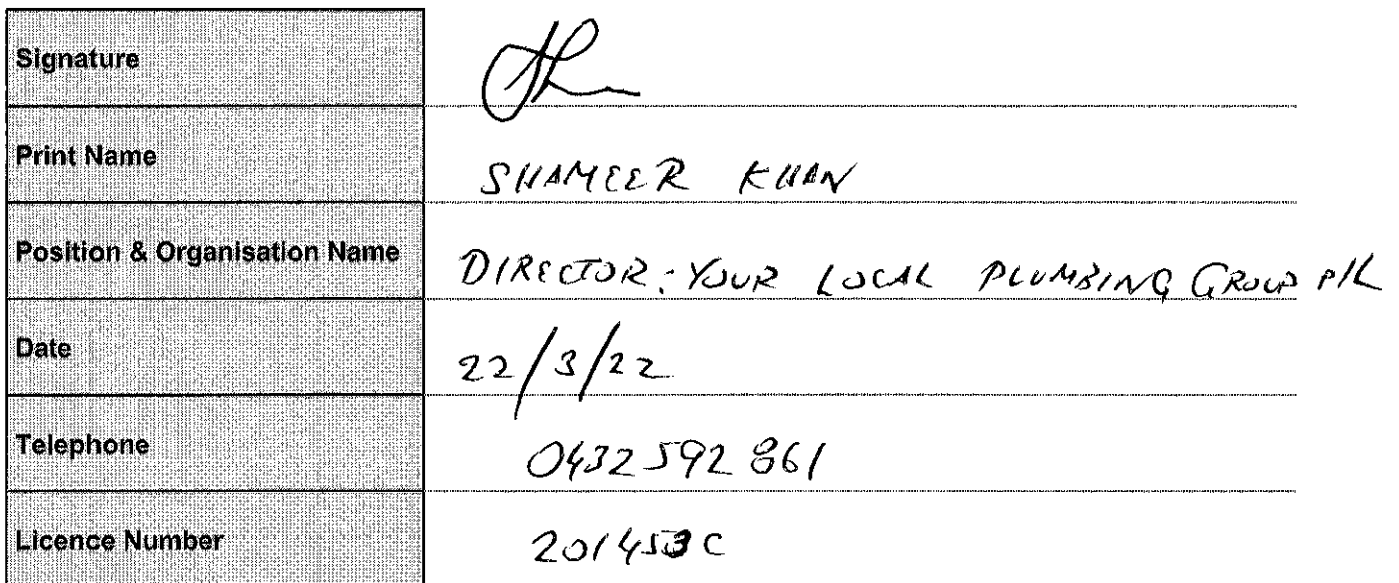 Signature
Print Name SHAMEER KHAN
Position & Organisation Name DIRECTOR: YOUR LOCAL PLUMBING GROUP P/L
Date 22/3/22
Telephone 0432 592 861
Licence Number 201453C